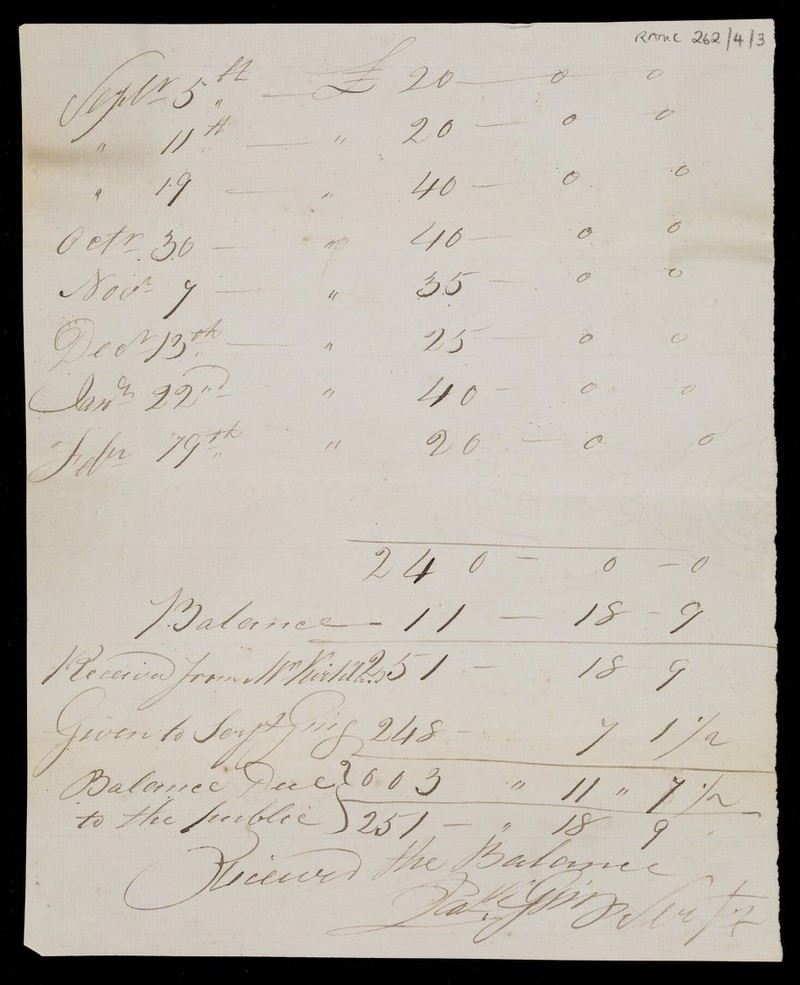 RAMC 262/4/3
Septr 5th — £ 20 — 0 0
" 11th — " 20 — 0 0
" 19 — " 40 — 0 0
Octr 30 — " 40 — 0 0
Novr 7 — " 35 — 0 0
Decr 13th — " 25 — 0 0
Jany 22nd " 40 — 0 0
Febr 19th " 20 — 0 0
240 — 0 — 0
Balance — 11 — 18 — 9
Received from Wm 251 — 18 9
Given to Sergt 248 — 7 1 1/2
Balance Due } 003 " 11 " 7 1/2
to the public } 251 — " 18 9
Received the Balance
Patk Serjt